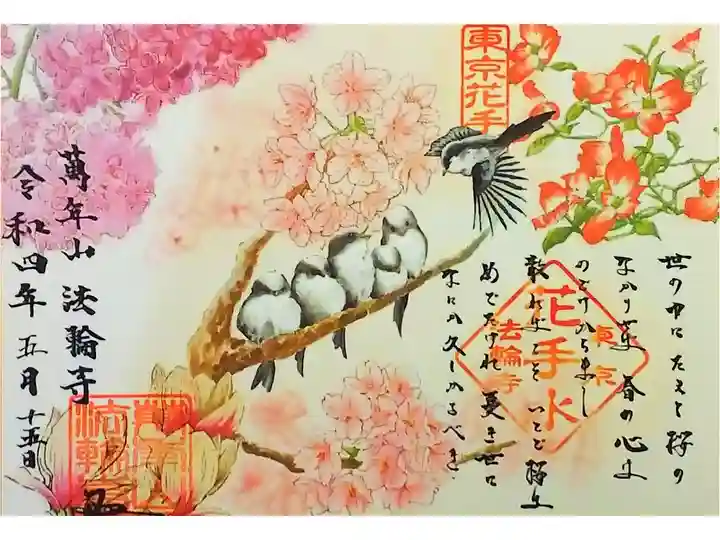 東京花手
世の中にたえて桜の
なかりせば 春の心は
のどけからまし
散ればこそ いとど桜は
めでたけれ 憂き世に
なにか久しかるべき
東京
花手水
法輪寺
萬年山法輪寺
令和四年五月十五日